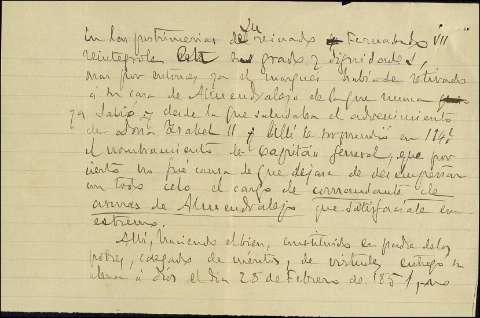 en las postrimerias del reinado de Fernando VII
reintegrole en su grado y dignidades,
mas por entonces ya el marques habiase retirado
á su casa de Almendralejo de la que nunca
ya salió y desde la que saludaba el advenimiento
de doña Isabel II y allí le sorprendió en 184
el nombramiento de Capitán general, que por
cierto no fué causa de que dejara de desempeñar
con todo celo el cargo de comandante de
armas de Almendralejo que satisfaciale en
extremo.
Allí, haciendo el bien, constituido en padre de los
pobres, cargado de méritos, de virtudes entregó su
alma á Dios el dia 28 de Febrero de 1851 para